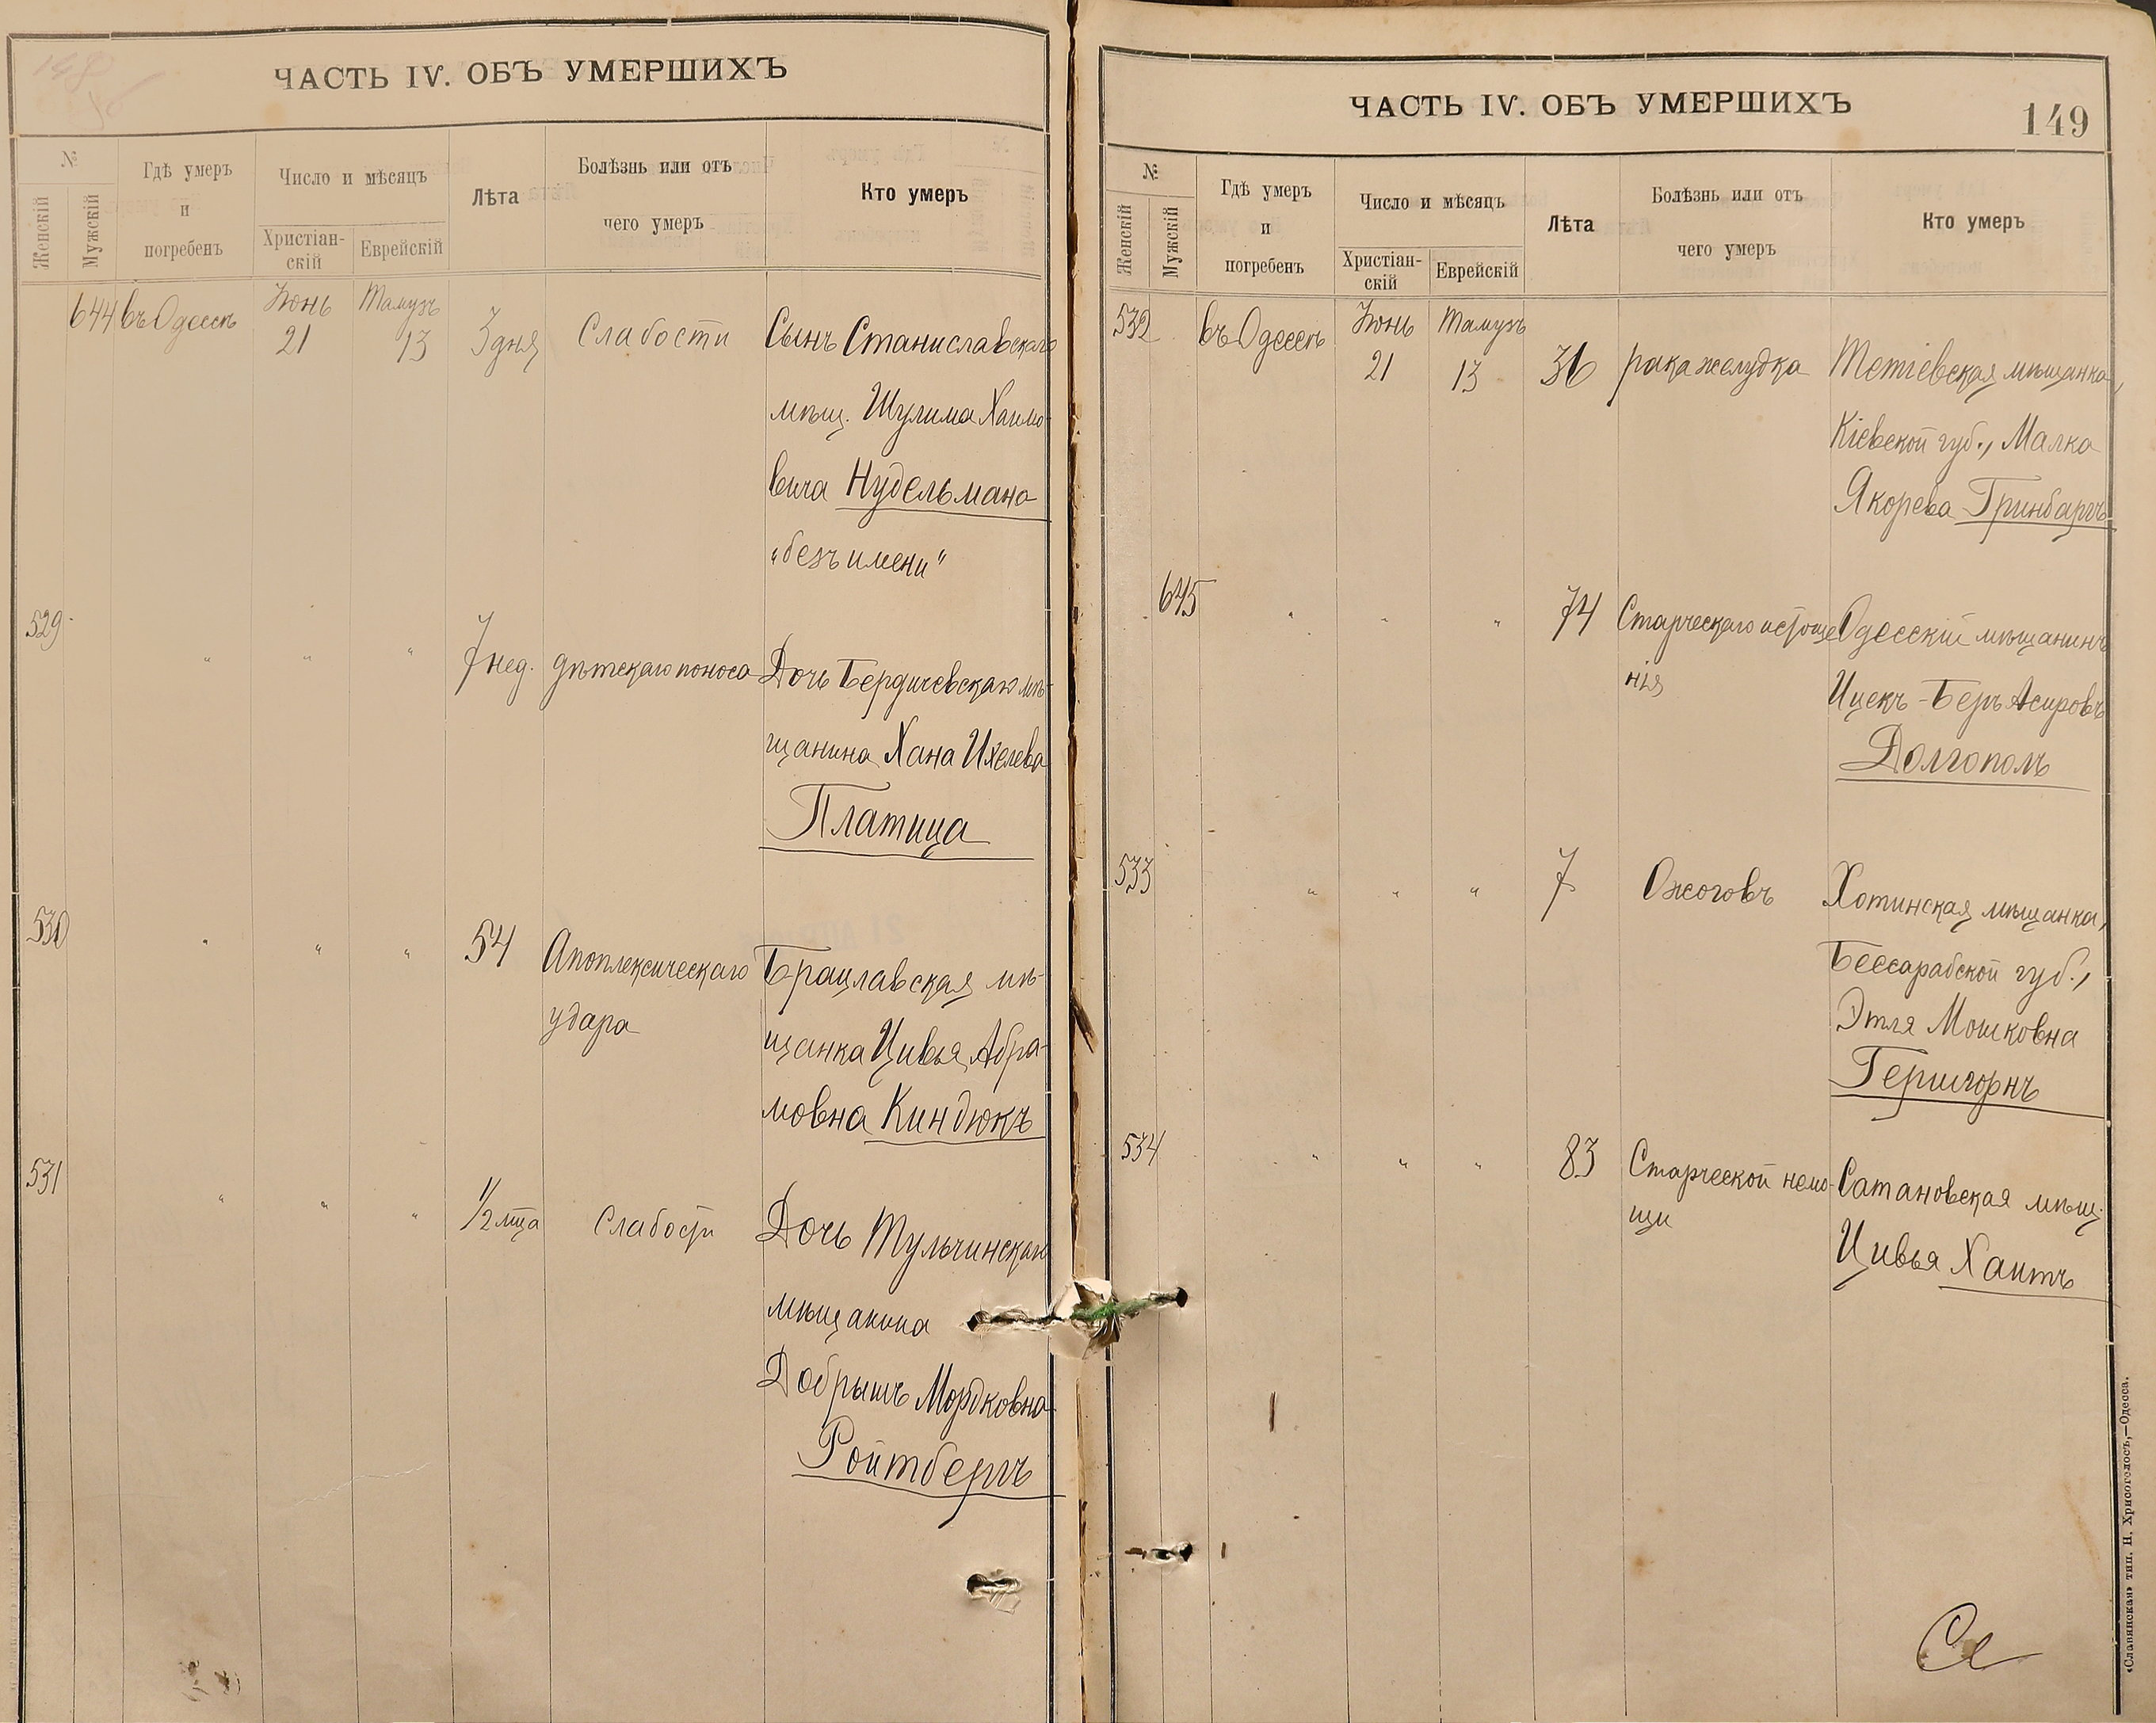 ЧАСТЬ IV. ОБЪ УМЕРШИХЪ
№
Женскій
Мужскій
Гдѣ умеръ
и
погребенъ
Число и мѣсяцъ
Христіан-
скій
Еврейскій
Лѣта
Болѣзнь или отъ
чего умеръ
Кто умеръ
644 въ Одессѣ Іюнь 21 Тамузъ 13 3 дня Слабости Сынъ Станиславскаго
мѣщ. Шулима Хаимо-
вича Нудельмана
„безъ имени"
529 " " " 7 нед. дѣтскаго поноса Дочь Бердичевскаго мѣ-
щанина Хана Ихелева
Платица
530 " " " 54 Апоплексическаго Брацлавская мѣ-
удара щанка Цивья Абра-
мовна Киндюкъ
531 " " " 1/2 мца Слабости Дочь Тульчинскаго
мѣщанина
Добрышъ Мордковна
Ройтбергъ
ЧАСТЬ IV. ОБЪ УМЕРШИХЪ
149
№
Женскій
Мужскій
Гдѣ умеръ
и
погребенъ
Число и мѣсяцъ
Христіан-
скій
Еврейскій
Лѣта
Болѣзнь или отъ
чего умеръ
Кто умеръ
532 въ Одессѣ Іюнь 21 Тамузъ 13 36 рака желудка Тетіевская мѣщанка,
Кіевской губ., Малка
Якорева Гринбаргъ
645 " " " 74 Старческаго истоще- Одесскій мѣщанинъ
нія Ицекъ-Беръ Асировъ
Долгополъ
533 " " " 7 Ожоговъ Хотинская мѣщанка,
Бессарабской губ.,
Этля Мошковна
Гершгорнъ
534 " " " 83 Старческой немо- Сатановская мѣщ.
щи Цивья Хаитъ
«Славянская» тип. Н. Хрисогелосъ,—Одесса.